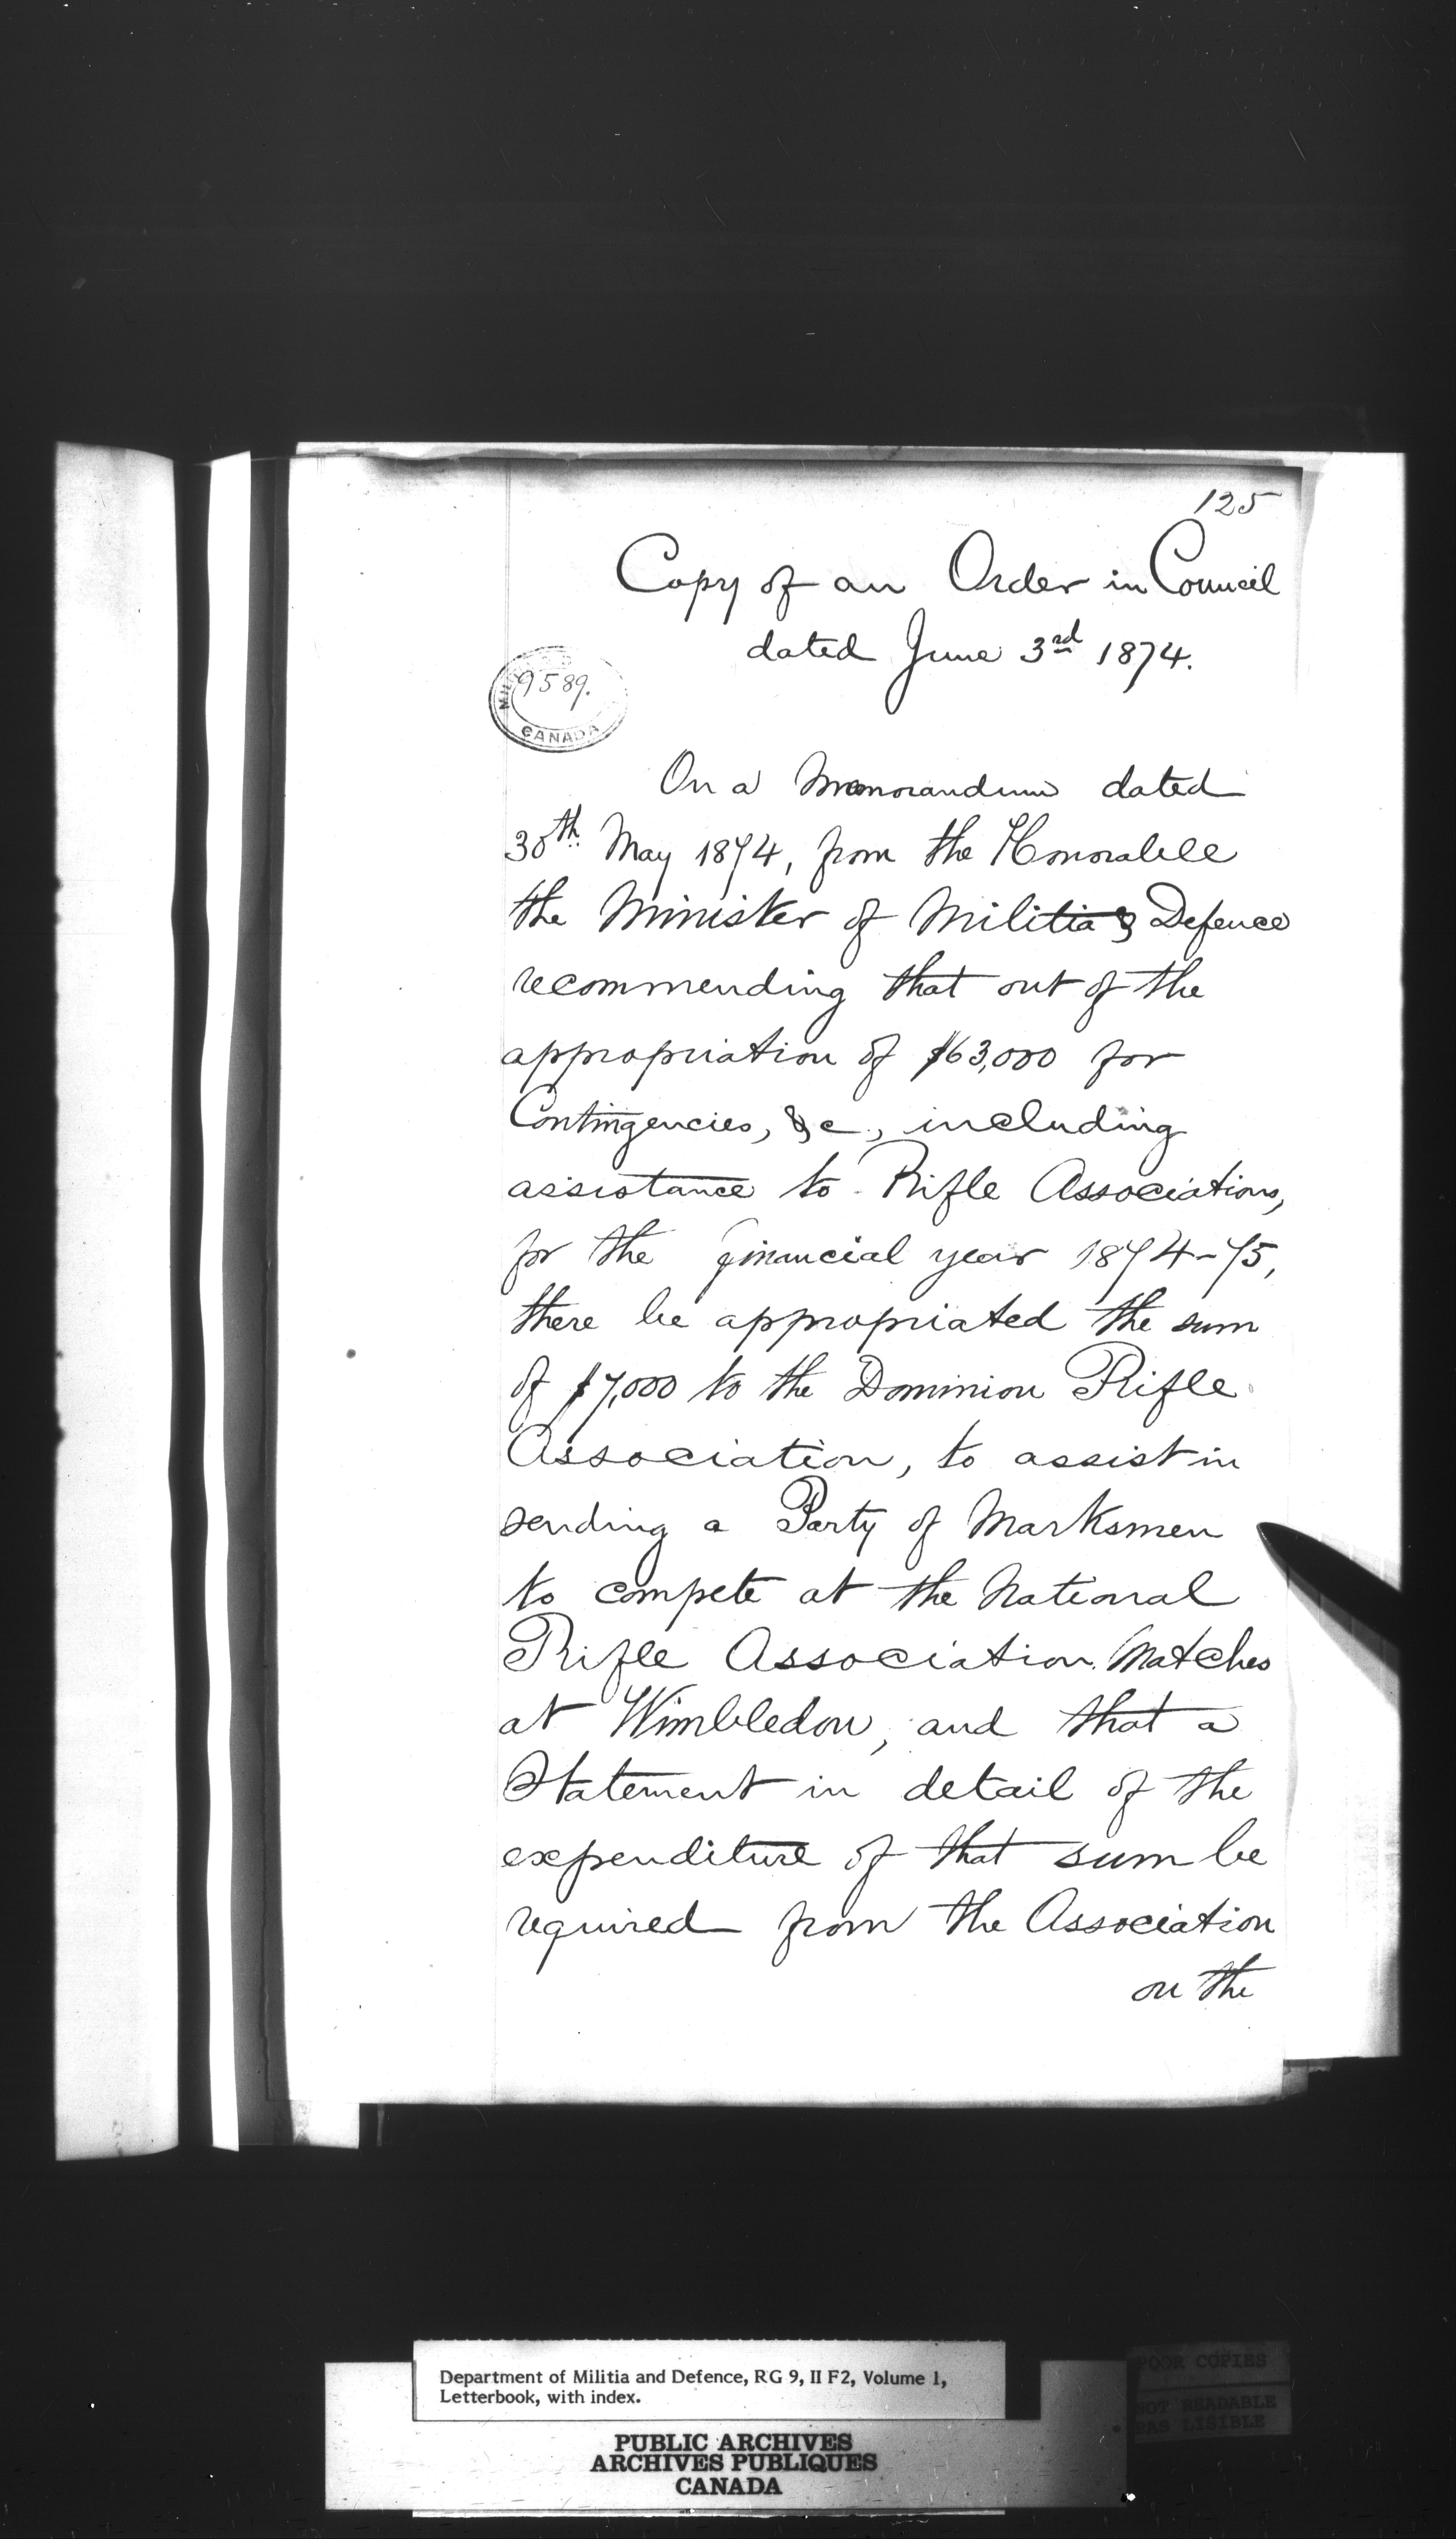 125
Copy of an Order in Council
dated June 3rd 1874.
9589.
CANADA
On a Memorandum dated
30th May 1874, from the Honorable
the Minister of Militia & Defence
recommending that out of the
appropriation of $63,000 for
Contingencies, &c., including
assistance to Rifle Associations,
for the financial year 1874-75,
there be appropriated the sum
of $7,000 to the Dominion Rifle
Association, to assist in
sending a Party of Marksmen
to compete at the National
Rifle Association Matches
at Wimbledon, and that a
Statement in detail of the
expenditure of that sum be
required from the Association
on the
Department of Militia and Defence, RG 9, II F2, Volume 1,
Letterbook, with index.
PUBLIC ARCHIVES
ARCHIVES PUBLIQUES
CANADA
POOR COPIES
NOT READABLE
PAS LISIBLE